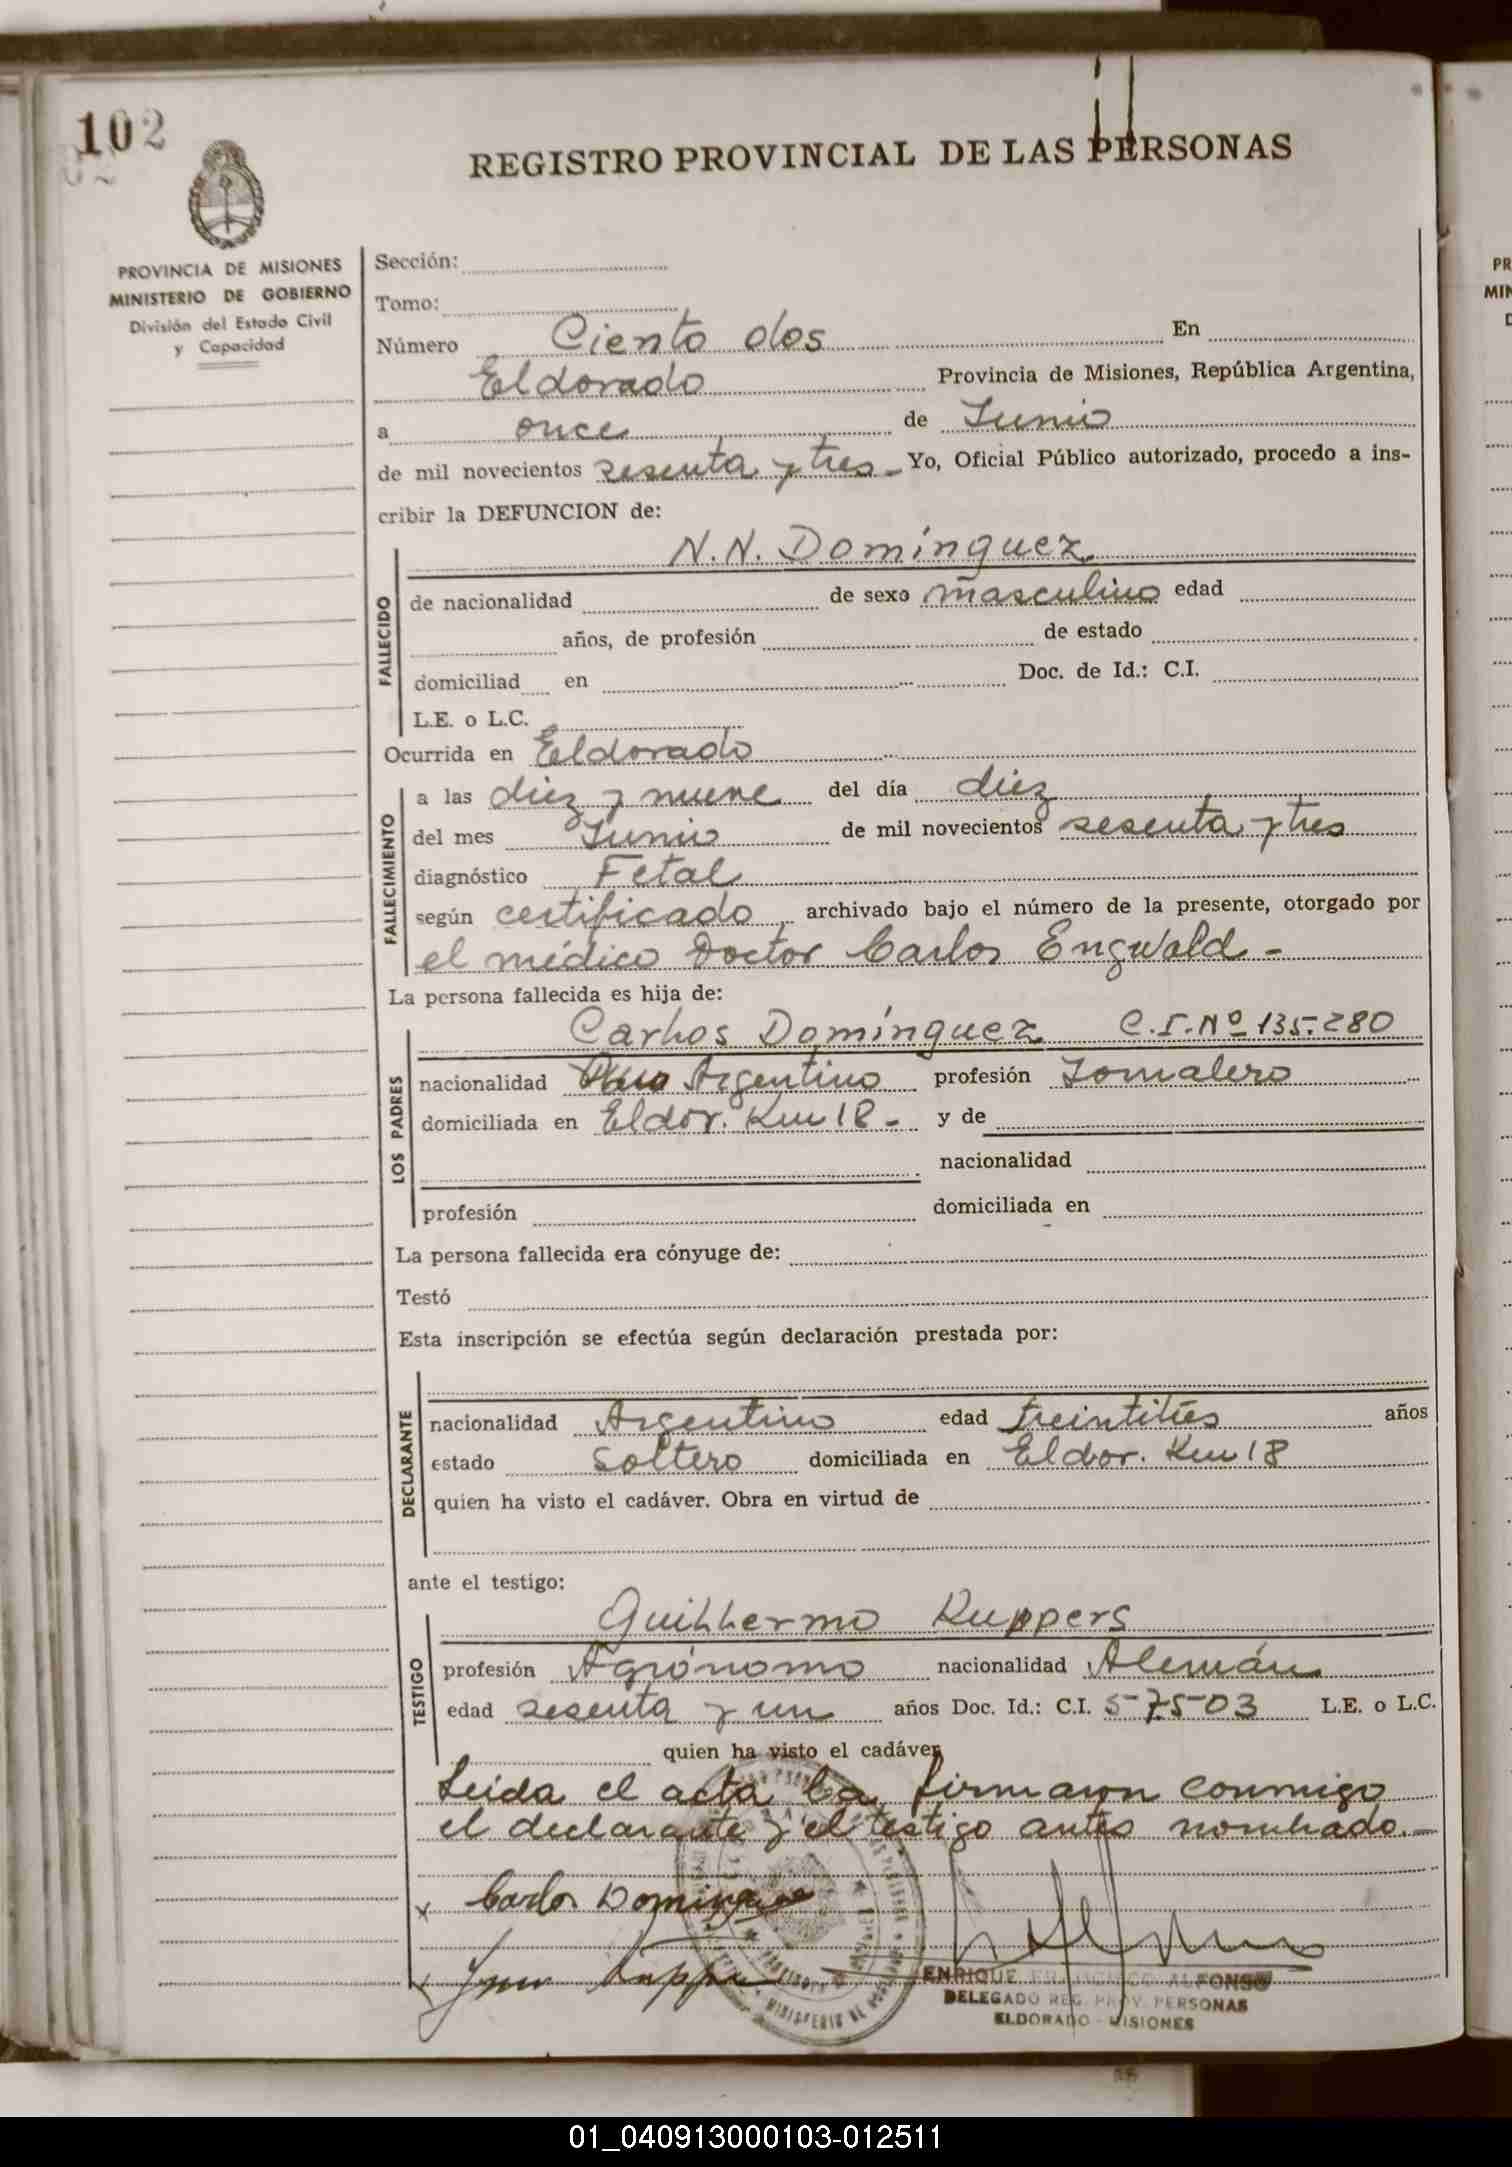 102
REGISTRO PROVINCIAL DE LAS PERSONAS
PROVINCIA DE MISIONES
MINISTERIO DE GOBIERNO
División del Estado Civil
y Capacidad
Sección:
Tomo:
Número Ciento dos En
Eldorado Provincia de Misiones, República Argentina,
a once de Junio
de mil novecientos sesenta y tres - Yo, Oficial Público autorizado, procedo a ins-
cribir la DEFUNCION de:
N.N. Domínguez
FALLECIDO
de nacionalidad de sexo masculino edad
años, de profesión de estado
domiciliad en Doc. de Id.: C.I.
L.E. o L.C.
Ocurrida en Eldorado
FALLECIMIENTO
a las diez y nueve del día diez
del mes Junio de mil novecientos sesenta y tres
diagnóstico Fetal
según certificado archivado bajo el número de la presente, otorgado por
el médico Doctor Carlos Engwald -
La persona fallecida es hija de:
LOS PADRES
Carlos Domínguez C.I. Nº 135.280
nacionalidad Argentino profesión Jornalero
domiciliada en Eldor. Km 18 - y de
nacionalidad
profesión domiciliada en
La persona fallecida era cónyuge de:
Testó
Esta inscripción se efectúa según declaración prestada por:
DECLARANTE
nacionalidad Argentino edad treintitrés años
estado soltero domiciliada en Eldor. Km 18
quien ha visto el cadáver. Obra en virtud de
ante el testigo:
TESTIGO
Guillermo Kuppers
profesión Agrónomo nacionalidad Alemán
edad sesenta y un años Doc. Id.: C.I. 57503 L.E. o L.C.
quien ha visto el cadáver
Leida el acta la firmaron conmigo
el declarante y el testigo antes nombrado.-
x Carlos Domínguez
x Kuppers
ENRIQUE FRANCISCO ALFONSO
DELEGADO REG. PROV. PERSONAS
ELDORADO - MISIONES
PR
MIN
01_040913000103-012511